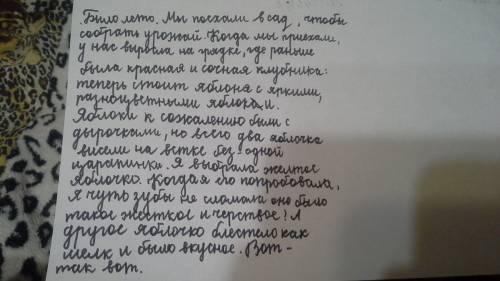 .Было лето. Мы поехали в сад, чтобы
собрать урожай. Когда мы приехали,
у нас выросла на грядке, где раньше
была красная и сочная клубника:
теперь стоит яблоня с яркими,
разноцветными яблоками.
Яблоки к сожалению были с
дырочками, но всего два яблочка
висели на ветке без одной
царапинки. Я выбрала желтое
яблочко. Когда я его попробовала,
я чуть зубы не сломала оно было
такое жесткое и черствое! А
другое яблочко блестело как
шелк и было вкусное. Вот-
так вот.